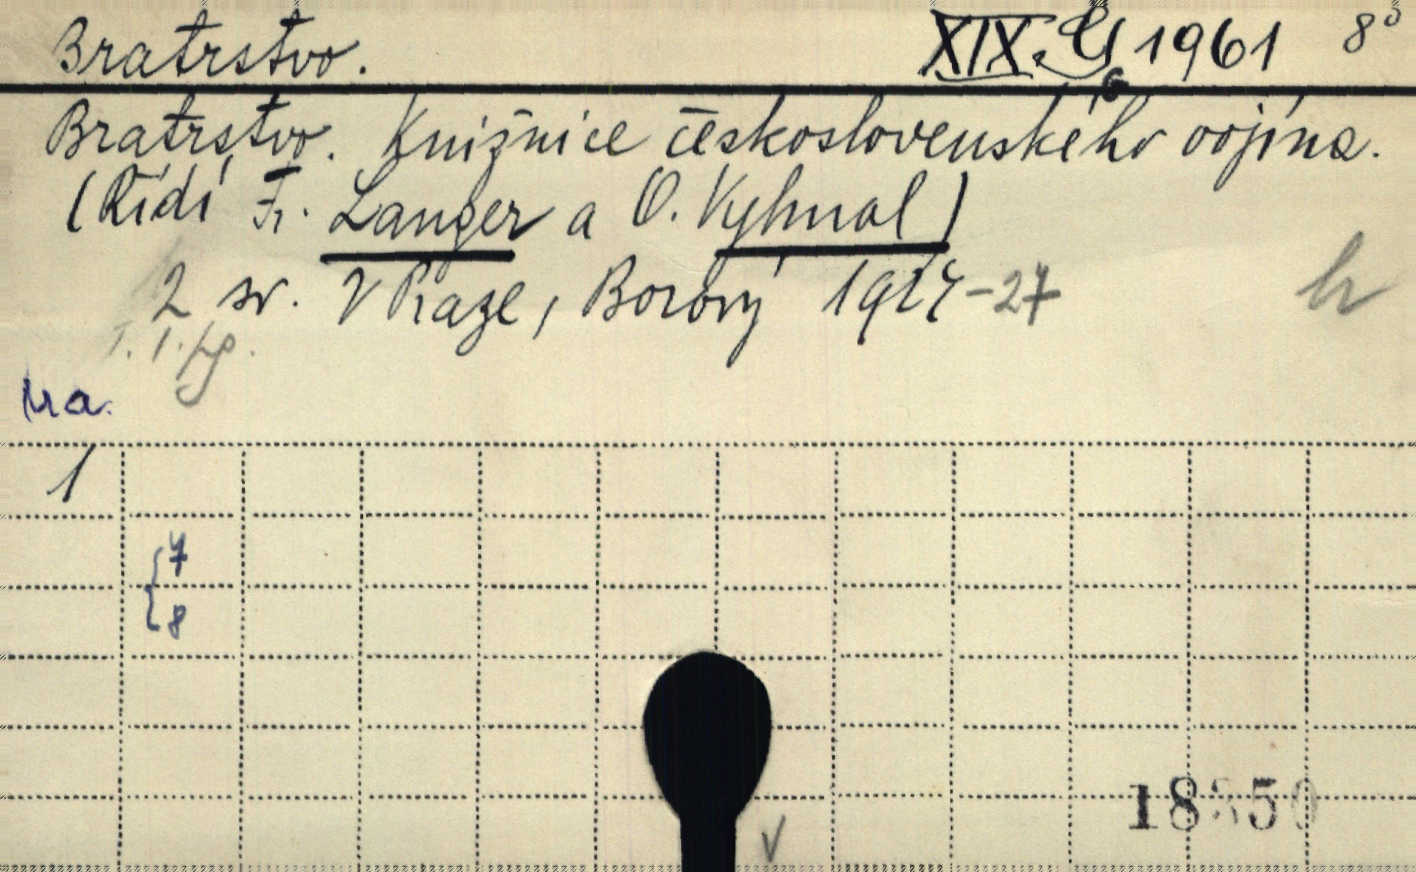 Bratrstvo. XIX. G 1961 8°
Bratrstvo. Knižnice československého vojína.
(Řídí Fr. Langer a O. Vyhnal)
2 sv. V Praze, Borový 1924-27
1
7
8
18350